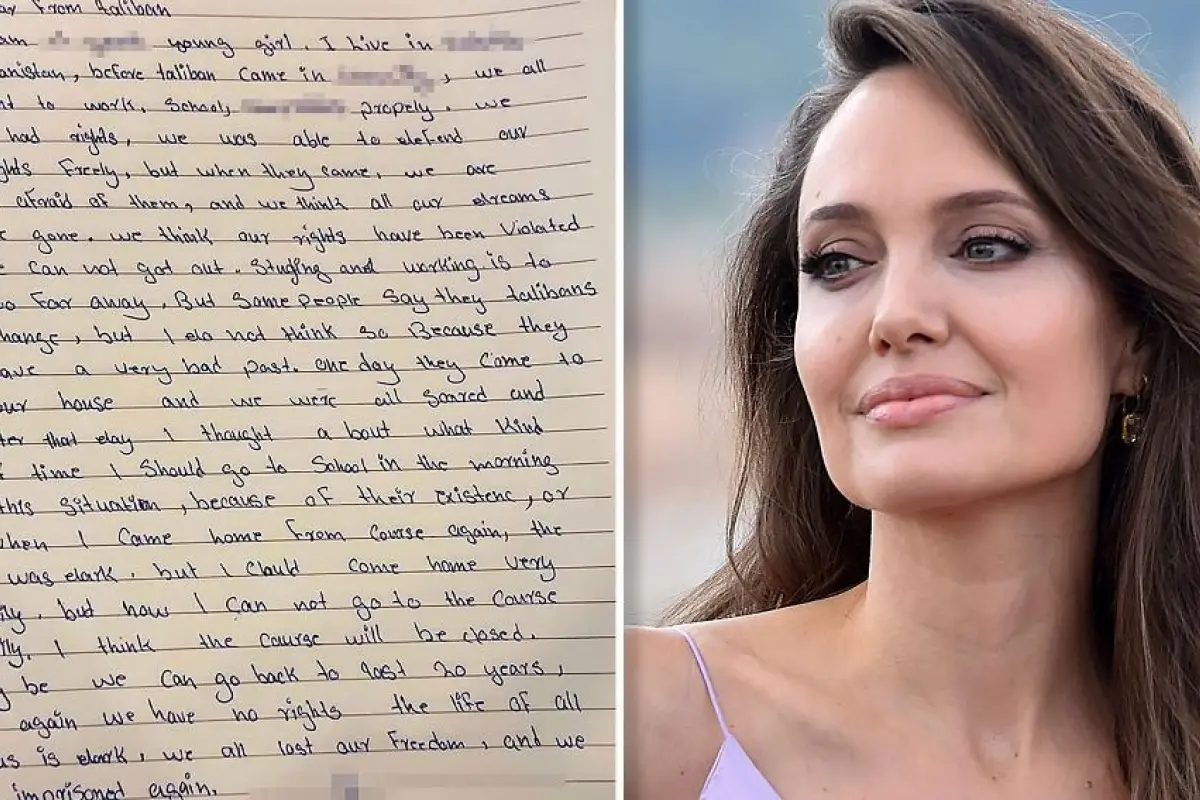 From Taliban
young girl. I live in
anistan, before taliban came in , we all
nt to work, School, propely. we
had rights, we was able to defend our
ghts Freely, but when they came, we are
afraid of them, and we think all our dreams
gone. we think our rights have been Violated
can not got out. Studing and working is to
o Far away. But Some people Say they talibans
hange, but I do not think so Because they
ave a very bad past. one day they Come to
our house and we were all Scared and
ter that day I thought a bout what Kind
time I Should go to School in the morning
this Situation, because of their existenc, or
when I came home From Course again, the
was dark. but I Could come home very
ily. but now I can not go to the course
rly. I think the course will be closed.
y be we can go back to last 20 years,
again we have no rights the life of all
us is dark, we all lost our Freedom, and we
imprisoned again.